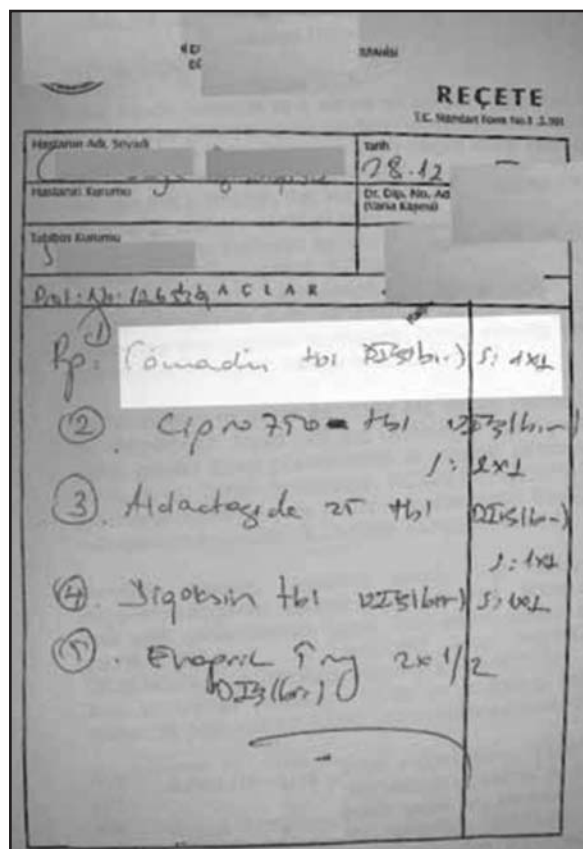 REÇETE
T.C. Standart Form No.1
Hastanın Adı, Soyadı
Tarih
28.12
Hastanın Kurumu
Dr. Dip. No, Ad
(Varsa Kaşesi)
Tabibin Kurumu
İLAÇLAR
1
Rp: Comadin tbl DIS(bir) S: 1x1
2 Cipro 750 tbl DIS(bir)
S: 2x1
3. Aldactazide 25 tbl DIS(bir)
S: 1x1
4. Digoksin tbl DIS(bir) S: 1x1
5. Enapril 5 mg 2x 1/2
DIS(bir)